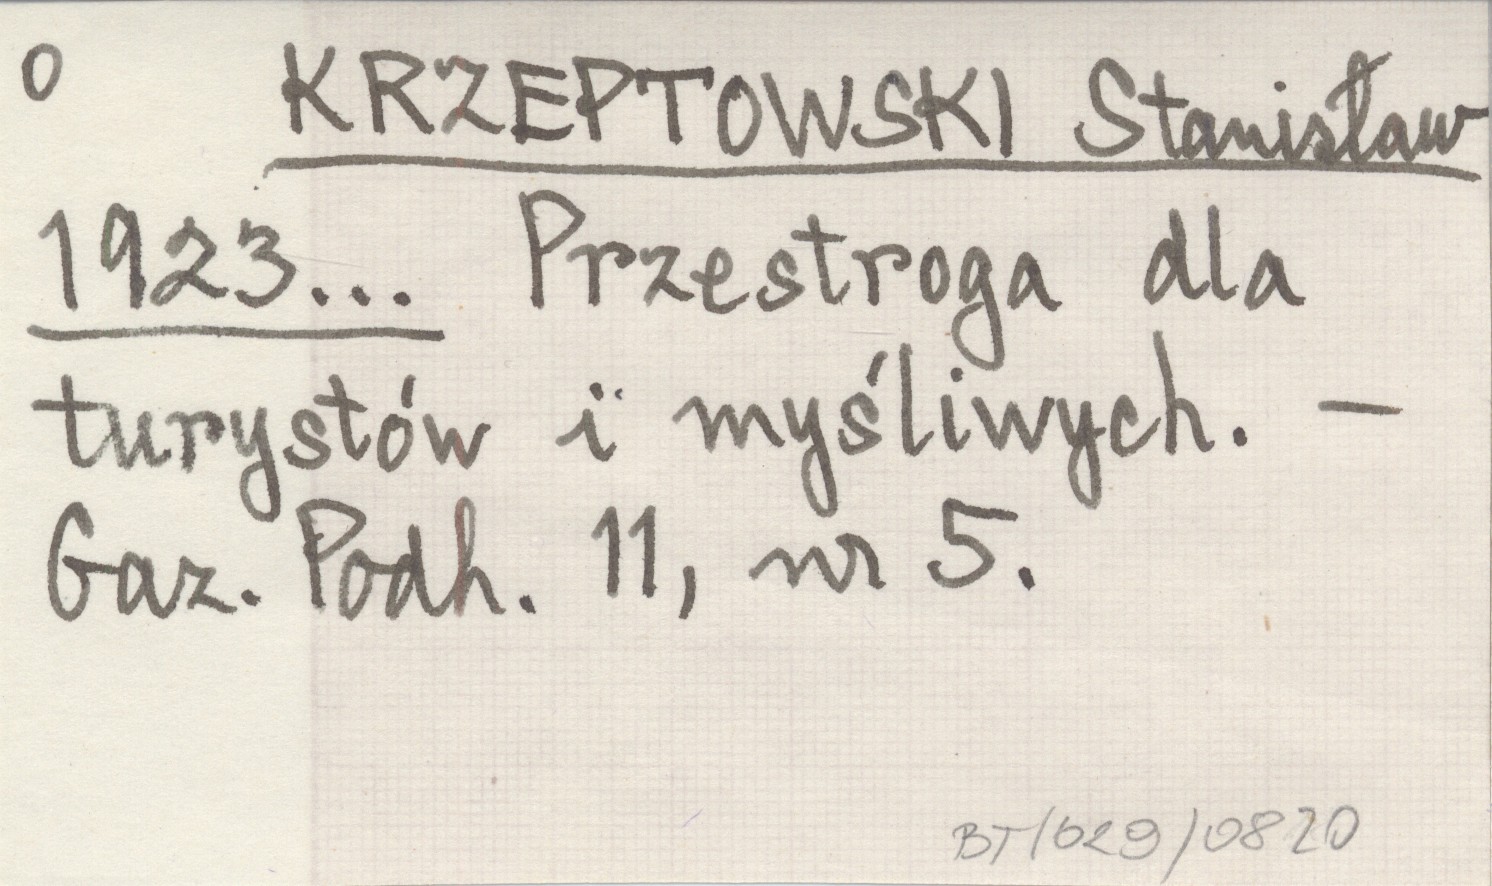 O KRZEPTOWSKI Stanisław
1923... Przestroga dla
turystów i myśliwych. –
Gaz. Podh. 11, nr 5.
BT/029/0820